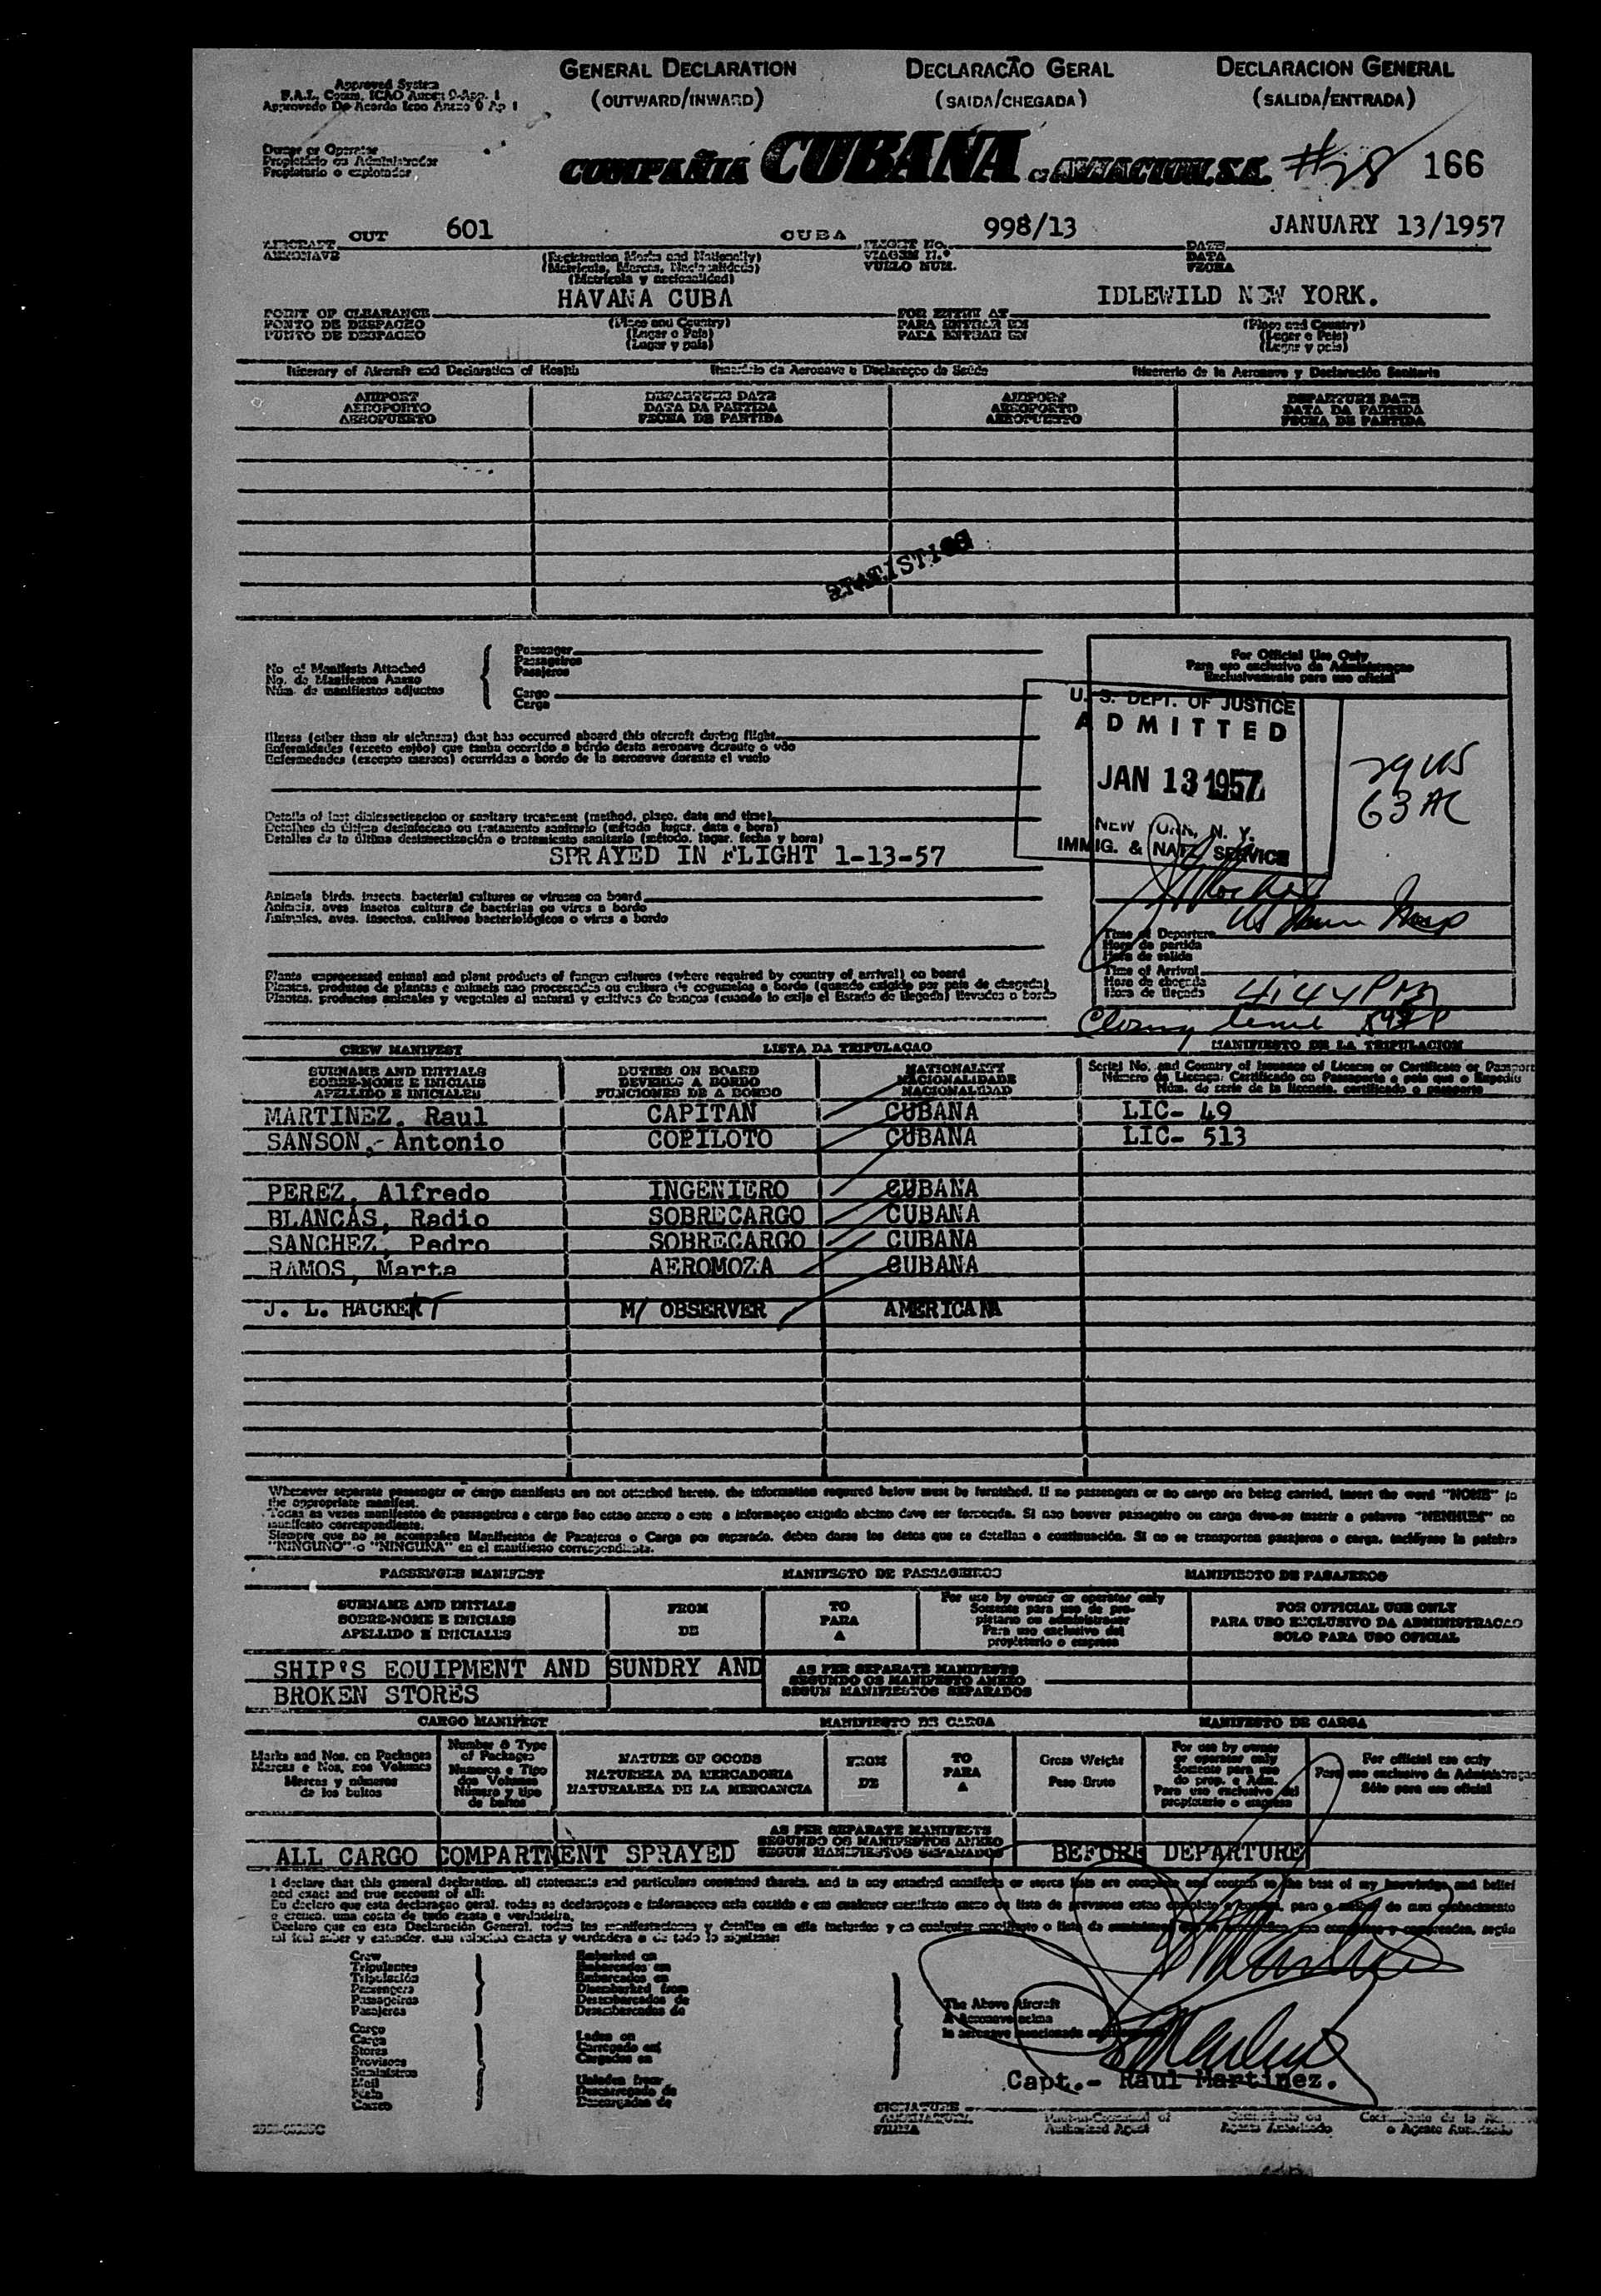 GENERAL DECLARATION DECLARACÃO GERAL DECLARACION GENERAL
(OUTWARD/INWARD) (SAIDA/CHEGADA) (SALIDA/ENTRADA)
Approved System
F.A.L. Comm. ICAO Annex 9-App. 1
Approvado De Acordo Icao Anexo 9 Ap 1
Owner or Operator
Propietário ou Administrador
Propietario o explotador
COMPAÑIA CUBANA DE AVIACION, S.A. #28 166
AIRCRAFT CUT 601 CUBA FLIGHT NO. 998/13 DATE JANUARY 13/1957
AERONAVE (Registration Marks and Nationality) VIAGEM N.º DATA
(Matricula, Marcas, Nacionalidade) VUELO NUM. FECHA
(Matricula y nacionalidad)
HAVANA CUBA IDLEWILD NEW YORK.
POINT OF CLEARANCE (Place and Country) FOR ENTRY AT (Place and Country)
PONTO DE DESPACHO (Lugar o Pais) PARA ENTRAR EM (Lugar e Pais)
PUNTO DE DESPACHO (Lugar y pais) PARA ENTRAR EN (Lugar y pais)
Itinerary of Aircraft and Declaration of Health Itinerário da Aeronave e Declaraçao de Saúde Itinerario de la Aeronave y Declaración Sanitaria
AIRPORT DEPARTURE DATE AIRPORT DEPARTURE DATE
AEROPORTO DATA DA PARTIDA AEROPORTO DATA DA PARTIDA
AEROPUERTO FECHA DE PARTIDA AEROPUERTO FECHA DE PARTIDA
STATISTICS
No. of Manifests Attached
No. de Manifestos Anexo
Núm. de manifiestos adjuntos
Passenger
Passageiros
Pasajeros
Cargo
Carga
For Official Use Only
Para uso exclusivo da Administraçao
Exclusivamente para uso oficial
U. S. DEPT. OF JUSTICE
ADMITTED
JAN 13 1957
NEW YORK, N. Y.
IMMIG. & NATZ. SERVICE
29 US
63 AC
Illness (other than air sickness) that has occurred aboard this aircraft during flight
Enfermidades (exceto enjôo) que tenha ocorrido a bórdo desta aeronave durante o vôo
Enfermedades (excepto mareos) ocurridas a bordo de la aeronave durante el vuelo
Details of last disinsectization or sanitary treatment (method, place, date and time)
Detalhes da última desinfeccao ou tratamento sanitario (método, lugar, data e hora)
Detalles de la última desinsectización o tratamiento sanitario (método, lugar, fecha y hora)
SPRAYED IN FLIGHT 1-13-57
Animals birds, insects, bacterial cultures or viruses on board
Animais, aves, insetos cultura de bactérias ou virus a bordo
Animales, aves, insectos, cultivos bacteriológicos o virus a bordo
Time of Departure
Hora de partida
Hora de salida
Time of Arrival
Hora de chegada
Hora de llegada
4:44 PM
Plants unprocessed animal and plant products of fungus cultures (where required by country of arrival) on board
Plantas, produtos de plantas e animais nao processados ou cultura de cogumelos a bordo (quando exigido por pais de chegada)
Plantas, productos animales y vegetales al natural y cultivos de hongos (cuando lo exija el Estado de llegada) llevados a bordo
CREW MANIFEST LISTA DA TRIPULACAO MANIFIESTO DE LA TRIPULACION
SURNAME AND INITIALS DUTIES ON BOARD NATIONALITY Serial No. and Country of Issuance of License or Certificate or Passport
SOBRE-NOME E INICIAIS DEVERES A BORDO NACIONALIDADE Número da Licença, Certificado ou Passaporte e pais que o Expediu
APELLIDO E INICIALES FUNCIONES DE A BORDO NACIONALIDAD Núm. de serie de la licencia, certificado o pasaporte
MARTINEZ, Raul CAPITAN CUBANA LIC- 49
SANSON,- Antonio COPILOTO CUBANA LIC- 513
PEREZ, Alfredo INGENIERO CUBANA
BLANCAS, Radio SOBRECARGO CUBANA
SANCHEZ, Pedro SOBRECARGO CUBANA
RAMOS, Marta AEROMOZA CUBANA
J. L. HACKERT M/ OBSERVER AMERICANA
Whenever separate passenger or cargo manifests are not attached hereto, the information required below must be furnished. If no passengers or no cargo are being carried, insert the word "NONE" in
the appropriate manifest.
Todas as vezes manifestos de passageiros e carga nao estao anexo a este a informaçao exigida abaixo deve ser fornecida. Si nao houver passageiro ou carga deve-se inserir a palavra "NENHUM" no
manifesto correspondiente.
Siempre que no se acompañen Manifiestos de Pasajeros o Carga por separado, deben darse los datos que se detallan a continuación. Si no se transportan pasajeros o carga, inclúyase la palabra
"NINGUNO" o "NINGUNA" en el manifiesto correspondiente.
PASSENGER MANIFEST MANIFESTO DE PASSAGEIROS MANIFIESTO DE PASAJEROS
SURNAME AND INITIALS
SOBRE-NOME E INICIAIS
APELLIDO E INICIALES
FROM
DE
TO
PARA
A
For use by owner or operator only
Somente para uso de pro-
pietario ou administrador
Para uso exclusivo del
propietario o empresa
FOR OFFICIAL USE ONLY
PARA USO EXCLUSIVO DA ADMINISTRACAO
SOLO PARA USO OFICIAL
SHIP'S EQUIPMENT AND SUNDRY AND
BROKEN STORES
AS PER SEPARATE MANIFESTS
SEGUNDO OS MANIFESTO ANEXO
SEGUN MANIFIESTOS SEPARADOS
CARGO MANIFEST MANIFESTO DE CARGA MANIFIESTO DE CARGA
Marks and Nos. on Packages
Marcas e Nos. nos Volumes
Marcas y números
de los bultos
Number & Type
of Packages
Numeros e Tipo
dos Volumes
Número y tipo
de bultos
NATURE OF GOODS
NATUREZA DA MERCADORIA
NATURALEZA DE LA MERCANCIA
FROM
DE
TO
PARA
A
Gross Weight
Peso Bruto
For use by owner
or operator only
Somente para uso
do prop. e Adm.
Para uso exclusivo del
propietario o empresa
For official use only
Para uso exclusivo da Administraçao
Sólo para uso oficial
AS PER SEPARATE MANIFESTS
SEGUNDO OS MANIFESTOS ANEXO
SEGUN MANIFIESTOS SEPARADOS
ALL CARGO COMPARTMENT SPRAYED BEFORE DEPARTURE
I declare that this general declaration, all statements and particulars contained therein, and in any attached manifests or stores lists are complete and contain to the best of my knowledge and belief
and exact and true account of all:
Crew
Tripulantes
Tripulación
Passengers
Passageiros
Pasajeros
Embarked on
Embarcados em
Embarcados en
Disembarked from
Desembarcados de
Desembarcados de
Cargo
Carga
Stores
Provisoes
Suministros
Mail
Mala
Correo
Laden on
Carregado em
Cargados en
Unladen from
Descarregado de
Descargados de
The Above Aircraft
A Aeronave acima
la aeronave mencionada
Capt.- Raul Martinez.
SIGNATURE
ASSINATURA
FIRMA
Pilot-in-Command of
Authorized Agent
Comandante ou
Agente Autorizado
Comandante de la
o Agente Autorizado